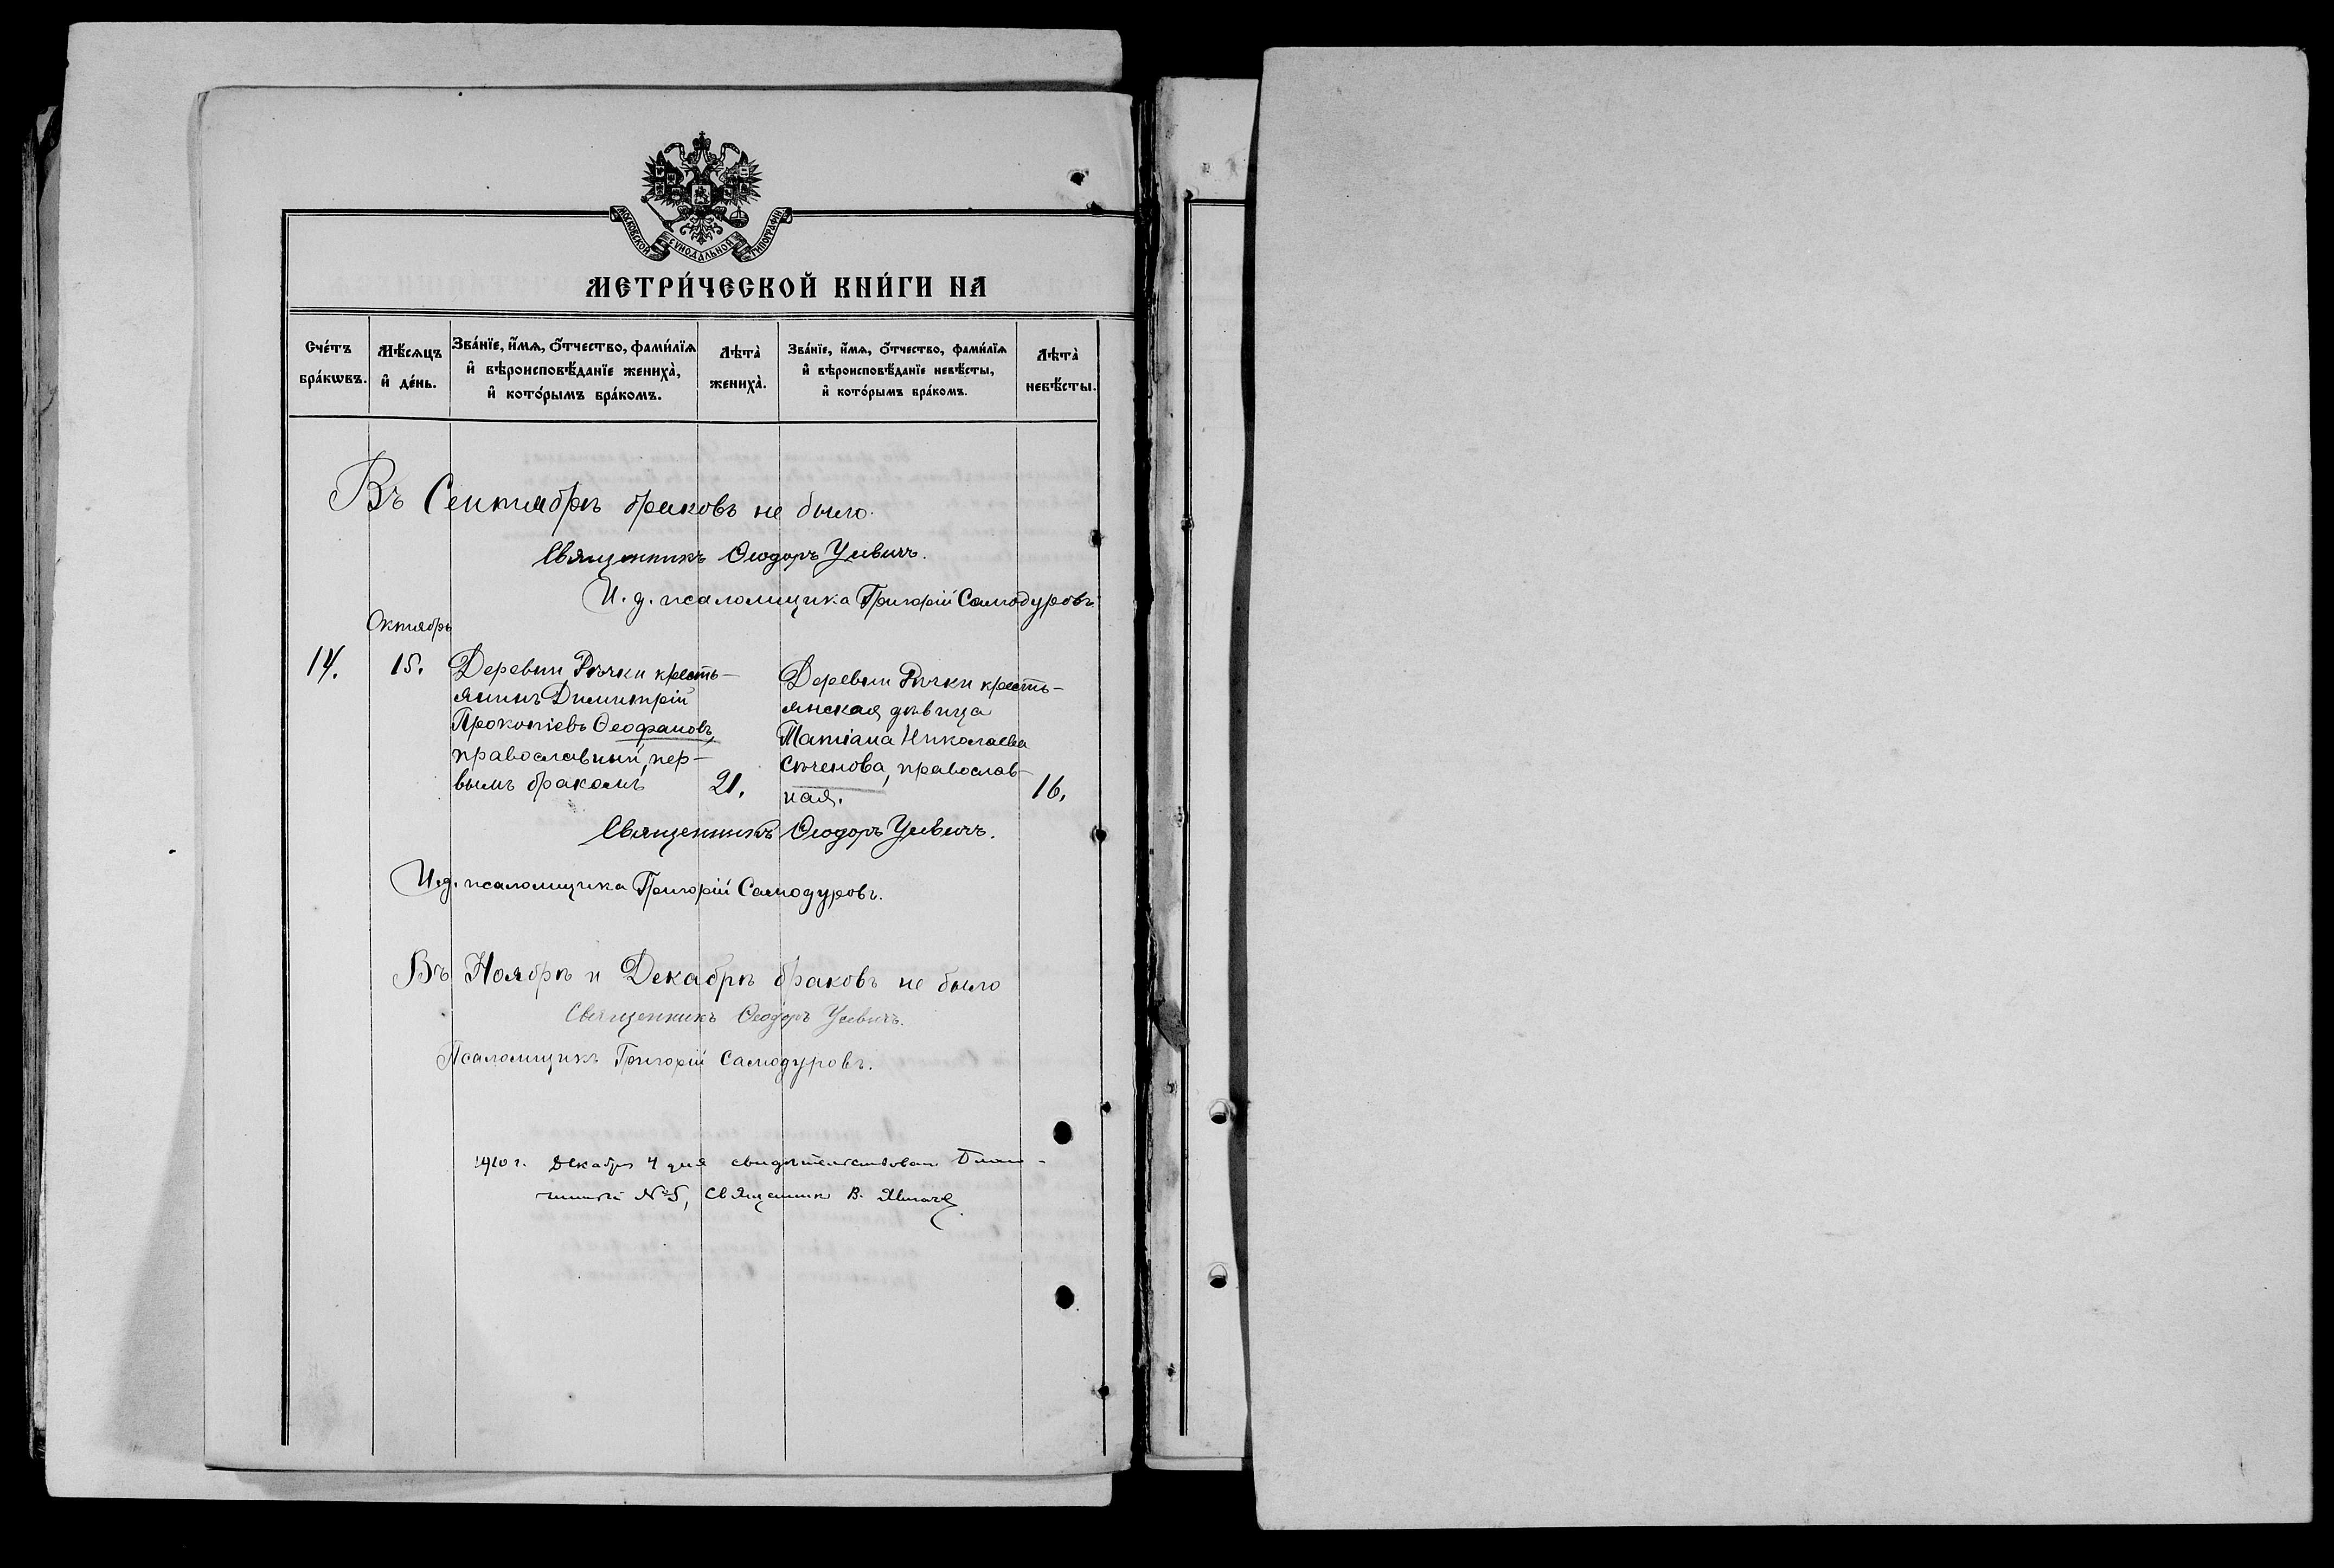 МОСКОВСКОЙ СѴНОДАЛЬНОЙ ТИПОГРАФІИ
МЕТРИ́ЧЕСКОЙ КНИ́ГИ НА
Сче́тъ бра́кѡвъ.
Мѣ́сѧцъ и҆ де́нь.
Зва́нїе, и҆́мѧ, ѻ҆́тчество, фами́лїѧ
и҆ вѣроисповѣ́данїе жениха̀,
и҆ кото́рымъ бра́комъ.
Лѣта̀ жениха̀.
Зва́нїе, и҆́мѧ, ѻ҆́тчество, фами́лїѧ
и҆ вѣроисповѣ́данїе невѣ́сты,
и҆ кото́рымъ бра́комъ.
Лѣта̀ невѣ́сты.
Въ Сентябрѣ браковъ не было.
Священникъ Ѳеодоръ Усевичъ.
И. д. псаломщика Григорій Самодуровъ
Октябрь
14.
15.
Деревни Рѣчки кресть-
янинъ Димитрій
Прокопіевъ Ѳеофановъ,
православный, пер-
вымъ бракомъ
21.
Деревни Рѣчки кресть-
янская дѣвица
Татіана Николаева
Сѣченова, православ-
ная.
16.
Священникъ Ѳеодоръ Усевичъ.
И. д. псаломщика Григорій Самодуровъ.
Въ Ноябрѣ и Декабрѣ браковъ не было
Священникъ Ѳеодоръ Усевичъ.
Псаломщикъ Григорій Самодуровъ.
1910 г. Декабря 4 дня свидѣтельствовалъ Благо-
чинный № 5, Священникъ В.